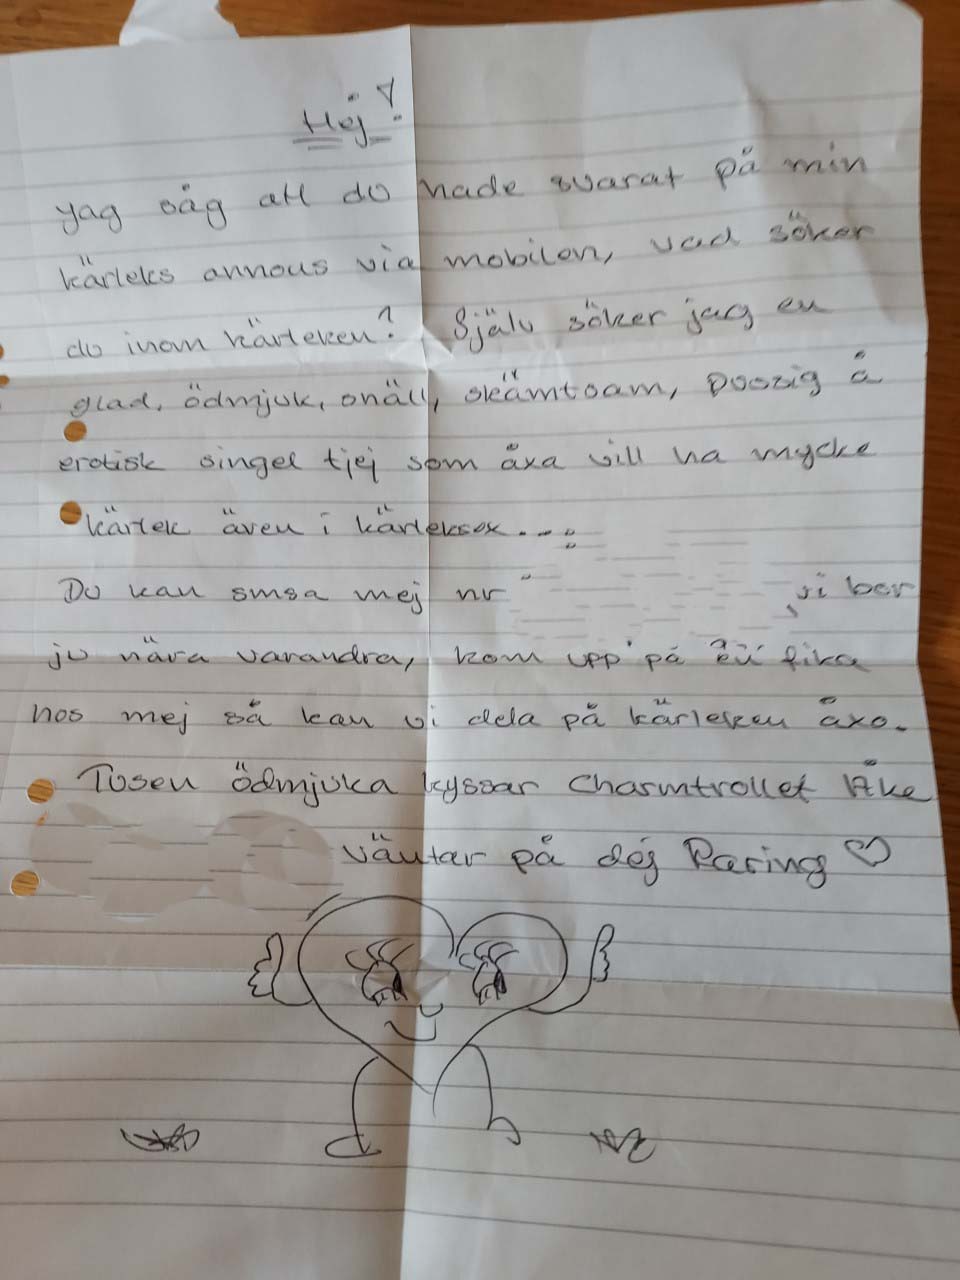 Hej!
yag såg att du hade svarat på min
kärleks annous via mobilen, vad söker
du inom kärleken? Själv söker jag en
glad, ödmjuk, snäll, skämtsam, pussig å
erotisk singel tjej som åxa vill ha mycke
kärlek även i kärleksox...;
Du kan smsa mej nr vi bor
ju nära varandra, kom upp på fika
hos mej så kan vi dela på kärleken åxo.
Tusen ödmjuka kyssar Charmtrollet Åke
väntar på dej Raring ♡